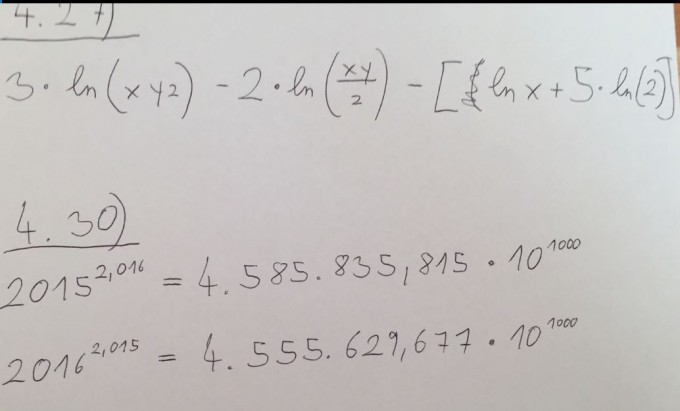 4.27)
3 · ln(xyz) - 2 · ln(xy/2) - [ln x + 5 · ln(2)]
4.30)
2015^2,016 = 4.585.835,815 · 10^1000
2016^2,015 = 4.555.629,677 · 10^1000